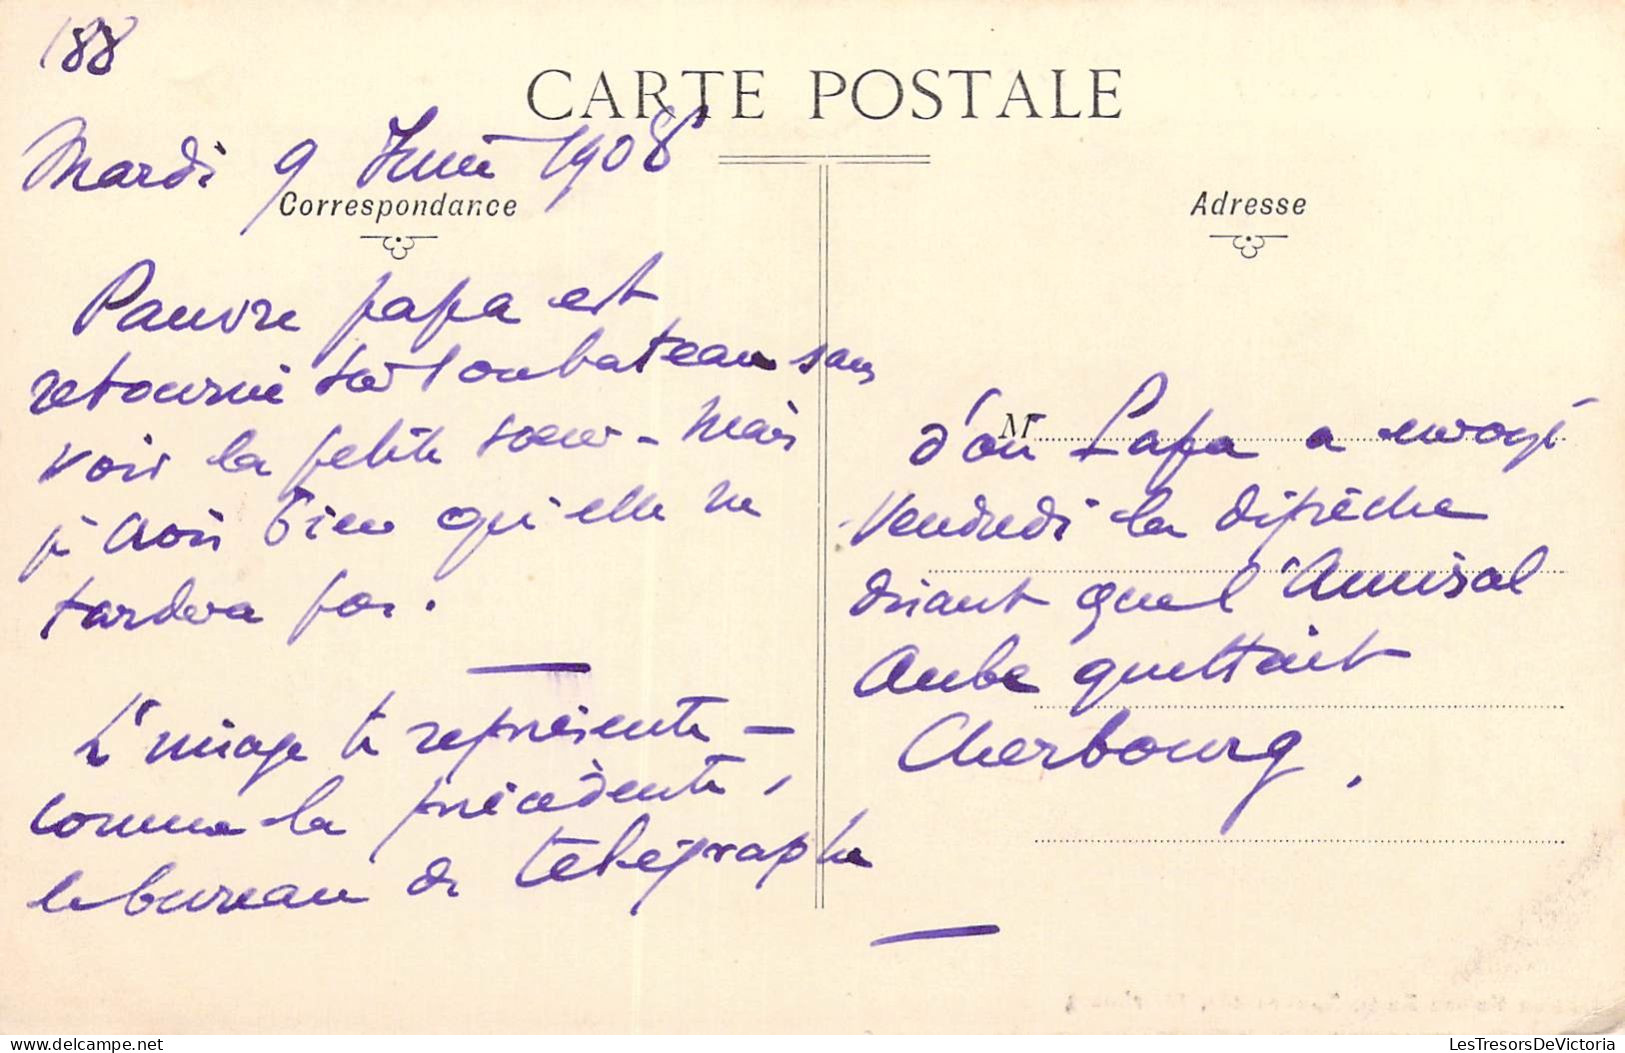 188
CARTE POSTALE
Mardi 9 Juin 1908
Correspondance
Pauvre papa est
retourné sur son bateau sans
voir la petite soeur - Mais
je crois bien qu'elle ne
tardera pas.
L'image te représente -
comme la précédente,
le bureau de télégraphe
Adresse
M
d'où Papa a envoyé
Vendredi la dépêche
disant que l'Amiral
Aube quittait
Cherbourg.
delcampe.net
LesTresorsDeVictoria